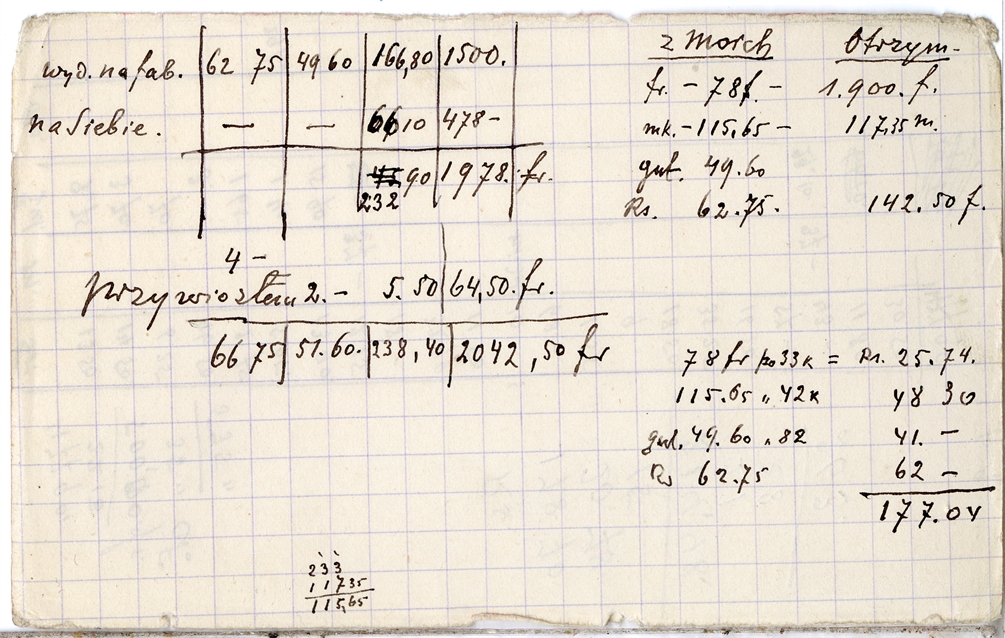 wyd. na fab. 62 75 49 60 166,80 1500.
na siebie. — — 66 10 478 -
90 1978. fr.
232
4 -
przywiozłem 2. - 5. 50 64,50. fr.
66 75 51. 60. 238, 40 2042, 50 fr
z Morch Otrzym-
fr. - 78 f. - 1.900. f.
mk. - 115,65 - 117,35 m.
gul. 49. 60
Rs. 62. 75. 142. 50 f.
78 fr po 33 k = Rs. 25. 74.
115.65 " 42 k 48 30
gul. 49. 60 " 82 41. -
Rs 62. 75 62 -
177. 04
233
11735
115,65